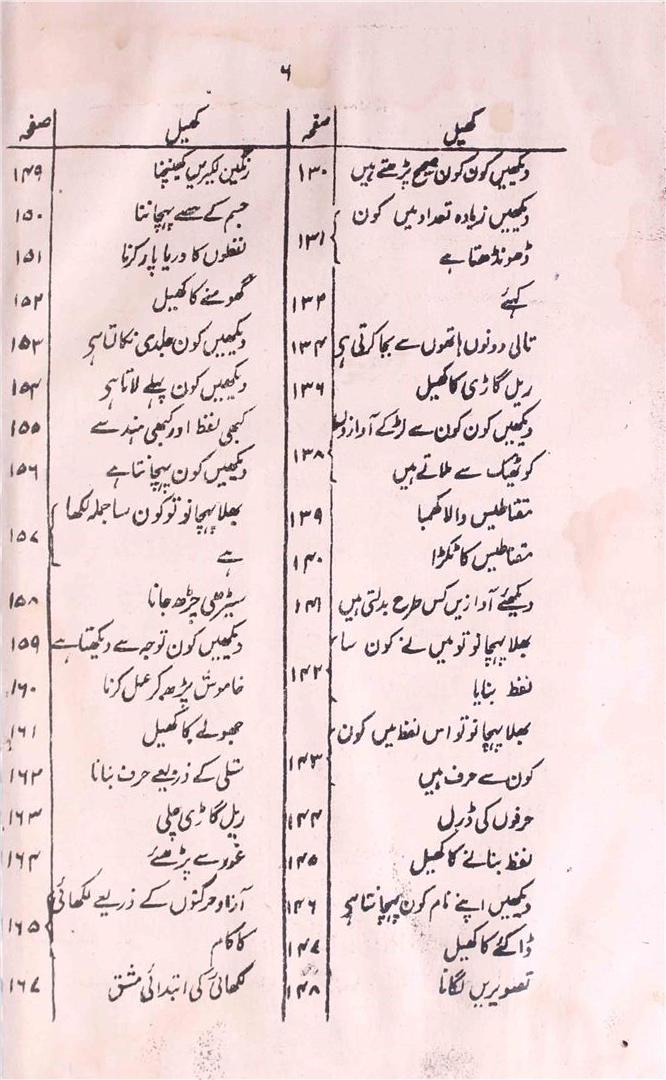 ۶
کھیل صفحہ
دیکھیں کون کون صحیح پڑھتے ہیں ۱۳۰
دیکھیں زیادہ تعداد میں کون
ڈھونڈھتا ہے ۱۳۱
کہئے ۱۳۲
تالی دونوں ہاتھوں سے بجا کرتی ہی ۱۳۴
ریل گاڑی کا کھیل ۱۳۶
دیکھیں کون کون سے لڑکے آواز
کو ٹھیک سے ملاتے ہیں ۱۳۸
مقناطیس والا کھمبا ۱۳۹
مقناطیس کا ٹکڑا ۱۴۰
دیکھئے آوازیں کس طرح بدلتی ہیں ۱۴۱
بھلا پہچانو تو میں نے کون سا
لفظ بنایا ۱۴۲
بھلا پہچانو تو اس لفظ میں کون
کون سے حرف ہیں ۱۴۳
حرفوں کی ڈرل ۱۴۴
لفظ بنانے کا کھیل ۱۴۵
دیکھیں اپنے نام کون پہچانتا ہی ۱۴۶
ڈاکئے کا کھیل ۱۴۷
تصویریں لگانا ۱۴۸
کھیل صفحہ
رنگین لکیریں کھینچنا ۱۴۹
جسم کے حصے پہچاننا ۱۵۰
لفظوں کا دریا پار کرنا ۱۵۱
گھومنے کا کھیل ۱۵۲
دیکھیں کون جلدی نکالتا ہی ۱۵۳
دیکھیں کون پہلے لاتا ہی ۱۵۴
کبھی لفظ اور کبھی ہندسے ۱۵۵
دیکھیں کون پہچانتا ہے ۱۵۶
بھلا پہچانو تو کون سا جملہ لکھا
ہے ۱۵۷
سیڑھی چڑھ جانا ۱۵۸
دیکھیں کون توجہ سے دیکھتا ہے ۱۵۹
خاموش پڑھ کر عمل کرنا ۱۶۰
جھولے کا کھیل ۱۶۱
تتلی کے ذریعے حرف بنانا ۱۶۲
ریل گاڑی چلی ۱۶۳
غور سے پڑھئے ۱۶۴
آزاد حرکتوں کے ذریعے لکھائی
کا کام ۱۶۵
لکھائی کی ابتدائی مشق ۱۶۷